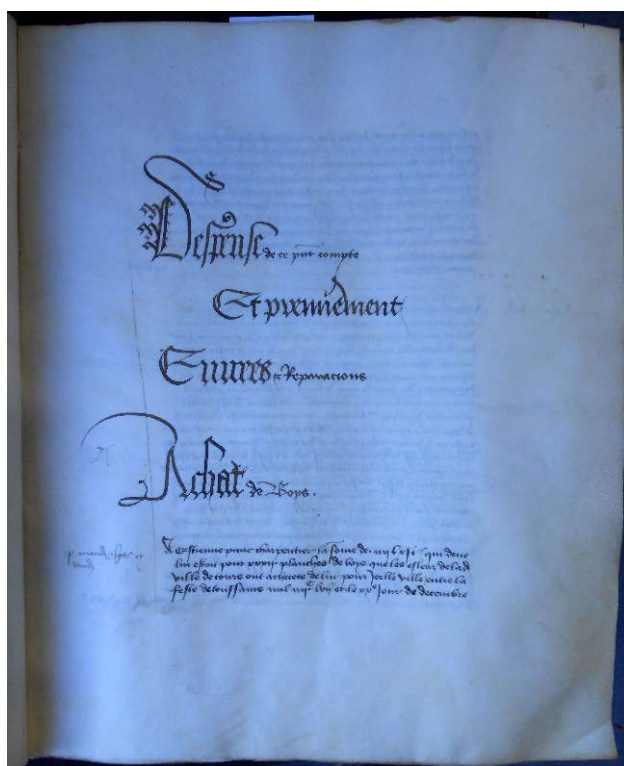 Despense de ce pñt compte
Et premierement
Euures et Reparacions
Achat de Boys .
A estienne charpentier la some de iiij l qui deue
lui estoit pour planches de boys que les esleuz de lad
ville de tours ont achetees de lui pour Icelle ville entre la
feste de toussains mil iiijc et le xxe jour de decembre
p mandt